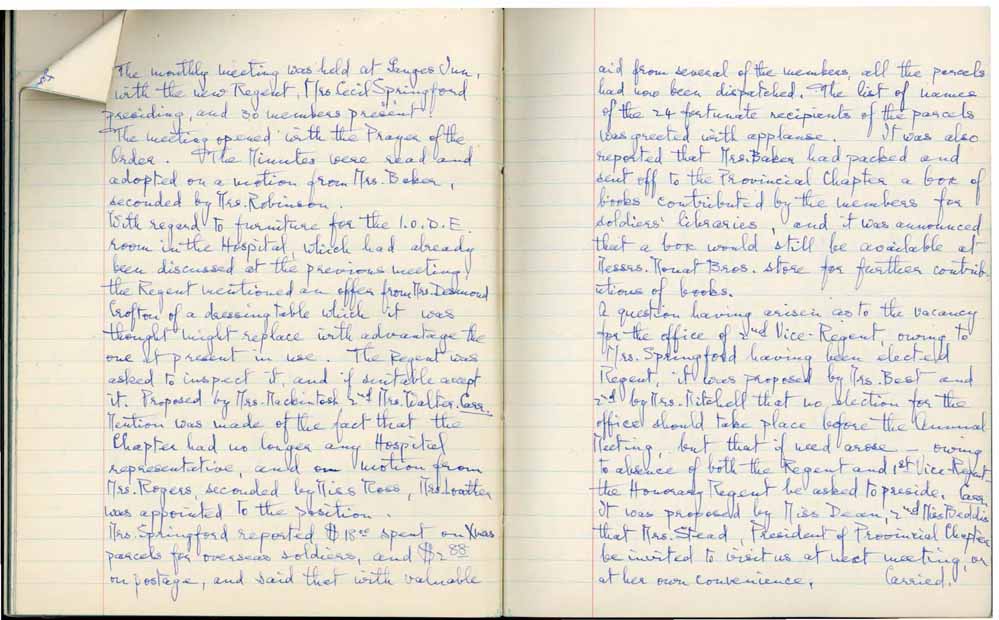 The monthly meeting was held at Ganges Inn,
with the new Regent, Mrs. Cecil Springford
presiding, and 30 members present.
The meeting opened with the Prayer of the
Order. The Minutes were read and
adopted on a motion from Mrs. Baker,
seconded by Mrs. Robinson.
With regard to furniture for the I.O.D.E.
room in the Hospital, which had already
been discussed at the previous meeting,
the Regent mentioned an offer from Mrs. Desmond
Crofton of a dressing table which it was
thought might replace with advantage the
one at present in use. The Regent was
asked to inspect it, and if suitable accept
it. Proposed by Mrs. Mackintosh 2nd Mrs. Walter. Carr.
Mention was made of the fact that the
Chapter had no longer any Hospital
representative, and on motion from
Mrs. Rogers, seconded by Miss Ross, Mrs.
was appointed to the position.
Mrs. Springford reported $18 spent on Xmas
parcels for overseas soldiers, and $2.88
on postage, and said that with valuable
aid from several of the members, all the parcels
had now been dispatched. The list of names
of the 24 fortunate recipients of the parcels
was greeted with applause. It was also
reported that Mrs. Baker had packed and
sent off to the Provincial Chapter a box of
books contributed by the members for
soldiers' libraries, and it was announced
that a box would still be available at
Messrs. Mouat Bros. store for further contrib-
utions of books.
A question having arisen as to the vacancy
for the office of 2nd Vice-Regent, owing to
Mrs. Springford having been elected
Regent, it was proposed by Mrs. Best and
2nd by Mrs. Mitchell that no election for the
office should take place before the Annual
Meeting, but that if need arose – owing
to absence of both the Regent and 1st Vice-Regent –
the Honorary Regent be asked to preside. Carr.
It was proposed by Miss Dean, 2nd Miss Beddis
that Mrs. Stead, President of Provincial Chapter
be invited to visit us at next meeting, or
at her own convenience. Carried.